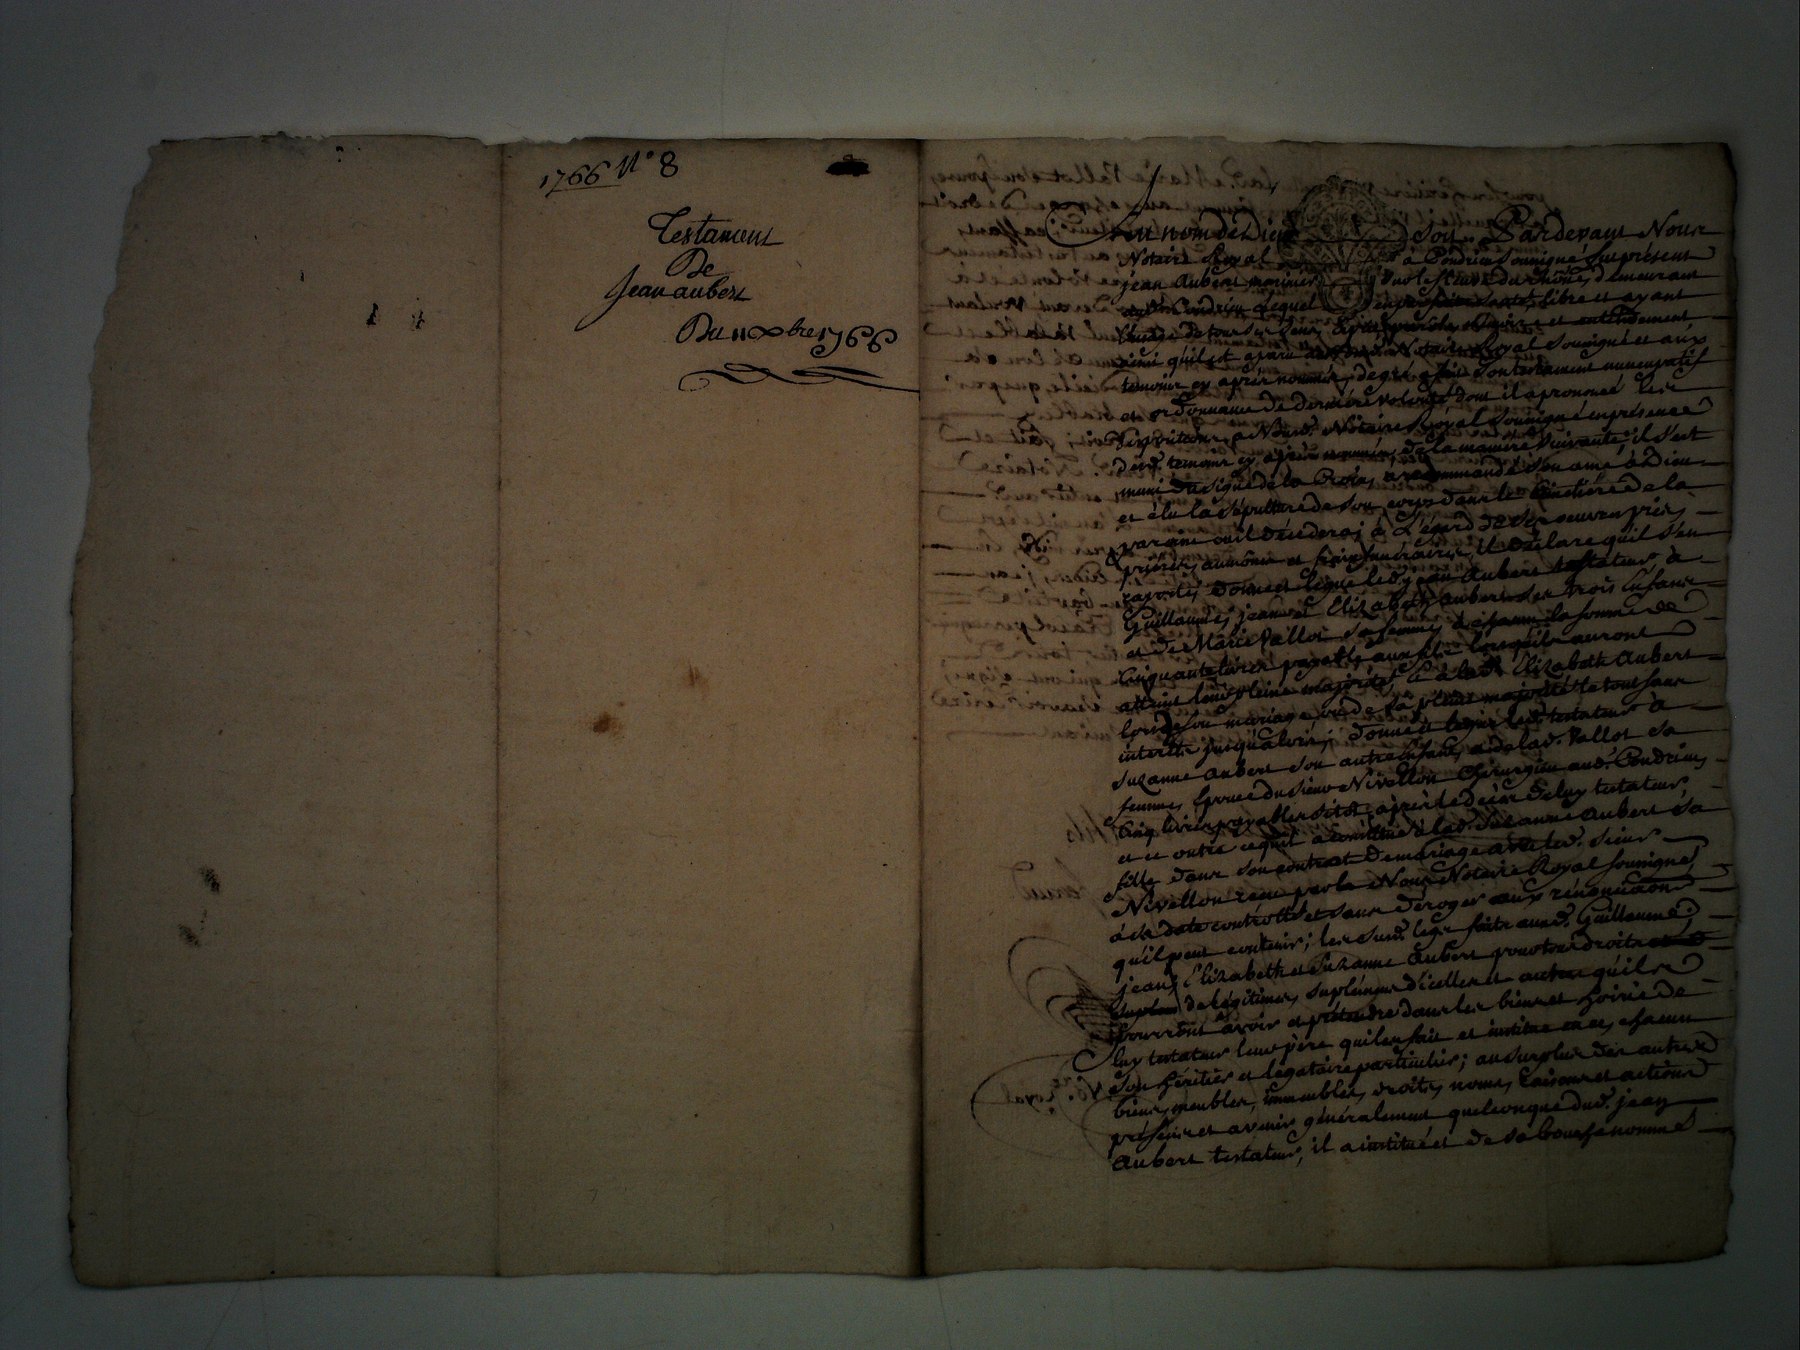 1766 N° 8
Testament
De
Jean aubert
Du 11 xbre 1766
Au nom de Dieu soit Pardevant Nous
Notaire Royal à Condrieu soussigné fut présent
jean Aubert marinier sur le fleuve du Rhône, demeurant
Condrieu lequel en libre et ayant
l'usage de tous ses sens, et entendement
ainsi qu'il est aparu Notaire Royal soussigné et aux
temoins cy après nommés, de gré a fait son testament nuncupatif
et ordonnance de dernière volonté dont il a prononcé les
dispositions a Nousd. Notaire Royal soussigné en présence
desd. temoins cy après nommés, de la manière suivante, il s'est
muni du signe de la Croix, a recommandé son ame à Dieu
et élu la sépulture de son corps dans le Cimetière de la
paroisse ou il décédera; à L'égard de ses
prières, aumônes et frais funéraires, il déclare qu'il s'en
raporte, Donne et lègue led. jean Aubert testateur à
Guillaume, jean et Elizabeth aubert ses trois Enfans
et de Marie Vallot sa femme, à chacun la somme de
Cinquante livres payable aux fils lorsqu'ils auront
atteint leur pleine majorité et à lad. Elizabeth Aubert
lors de son mariage ou de sa pleine majorité le tout sans
interêts jusqu'alors; donne et lègue led. testateur à
Suzanne Aubert son autre Enfant, et de lad. Vallot sa
femme, Epouse du sieur Nivellon Chirurgien aud. Condrieu,
Cinq livres payables sitot après le décès de luy testateur,
et ce outre ce qu'il a constitué à lad. Suzanne Aubert sa
fille dans son contrat de mariage avec led. sieur
Nivellon reçu par le Nous Notaire Royal soussigné
à sa date controllé et sans déroger aux
qu'il peut contenir; les susd. legs faits auxd. Guillaume,
jean, Elizabeth et Suzanne Aubert pour tous droits
de légitimes, suplément d'icelles et autres qu'ils
pourront avoir et prétendre dans les biens et hoirie de
luy testateur leur père qu'il en fait et institue en ce, chacun
son héritier et légataire particulier; au surplus des autres
biens, meubles, immeubles, droits, noms, raisons et actions
présens et avenir généralement quelconque dud. jean
Aubert testateur, il a institué et de sa bouche nommé